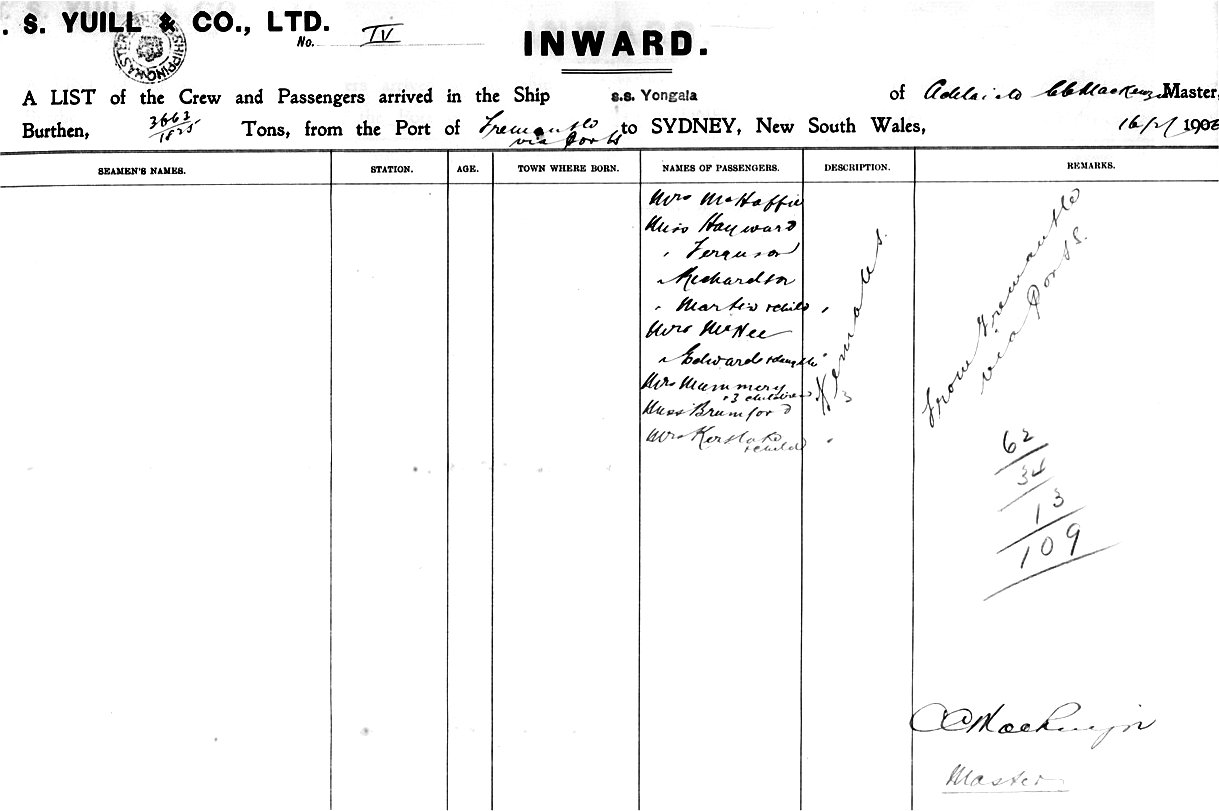 . S. YUILL & CO., LTD.
No. IV
INWARD.
A LIST of the Crew and Passengers arrived in the Ship s.s. Yongala of Adelaide CC Mackenzie Master,
Burthen, 3663/1825 Tons, from the Port of Fremantle via Ports to SYDNEY, New South Wales, 16/2/1908
SEAMEN'S NAMES. STATION. AGE. TOWN WHERE BORN. NAMES OF PASSENGERS. DESCRIPTION. REMARKS.
Mrs McHaffie
Miss Hayward
" Ferguson
" Richardson
" Martin & child "
Mrs McNee
" Edwards & daughter "
Mrs Mummery
& 3 children 3
Miss Brumford
Mrs Kerslake
& child "
Females
From Fremantle
via Ports.
62
34
13
109
CC Mackenzie
Master